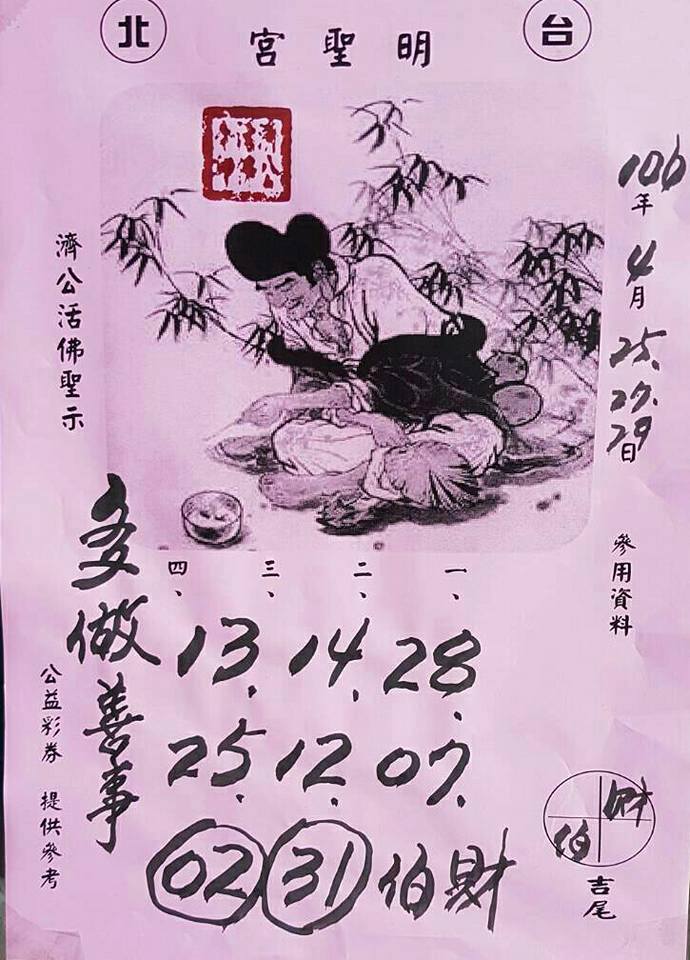 台北
明聖宮
106年4月25.27.29日
參用資料
濟公活佛聖示
一、二、三、四、
28. 14. 13.
07. 12. 25.
財伯 31 02
多做善事
財
伯
吉尾
公益彩券 提供參考